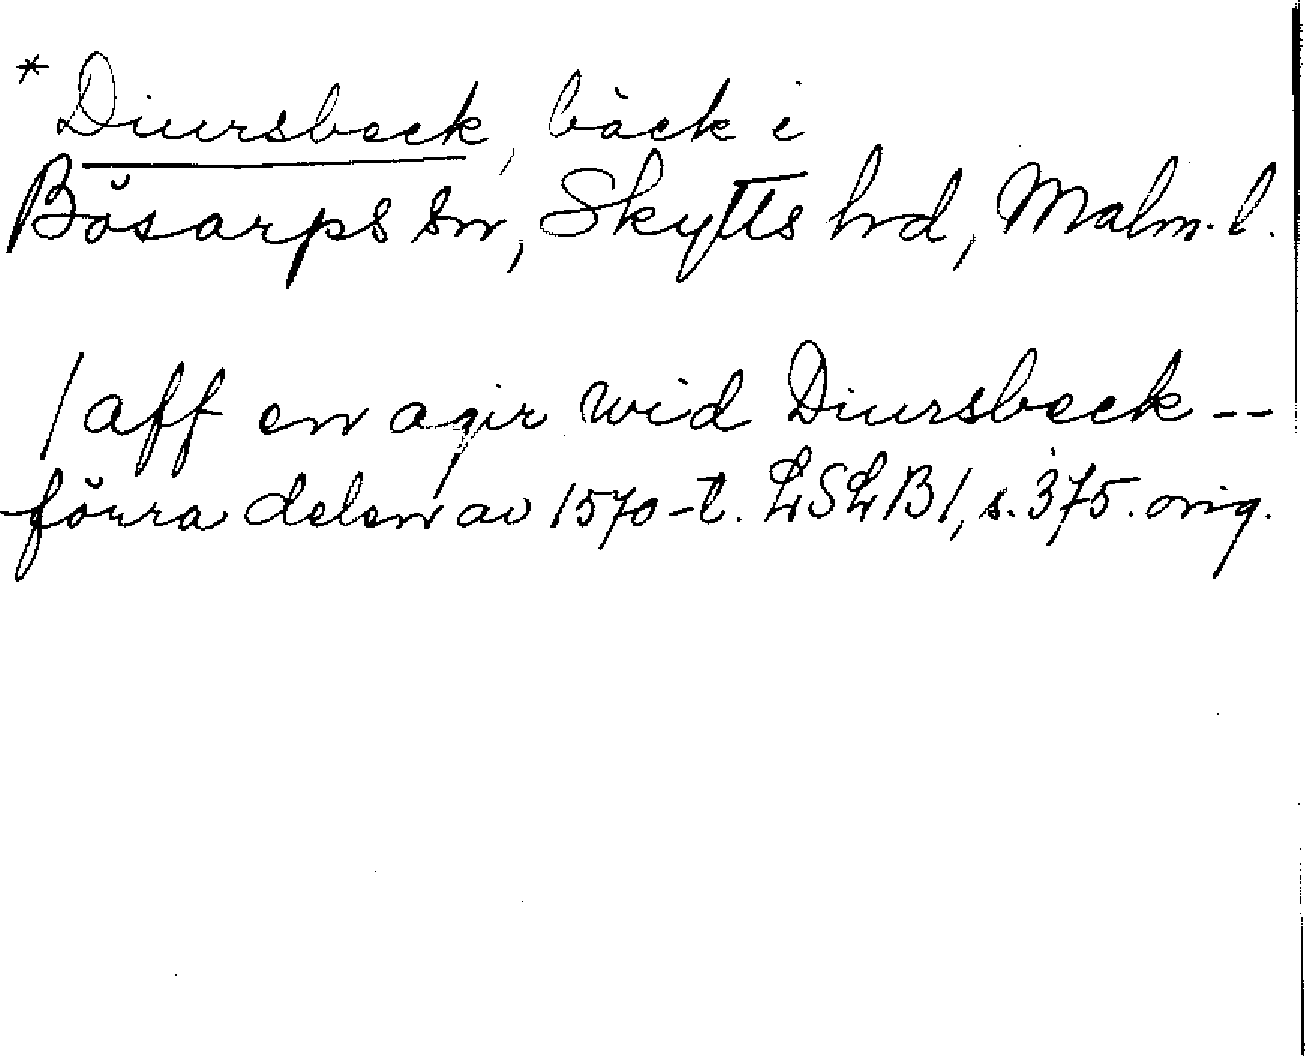 * Diursbeck, bäck i
Bösarps sn, Skytts hd, Malm. l.
/ aff en agir wid Diursbeck --
förra delen av 1570-t. LSLB1, s. 375. orig.